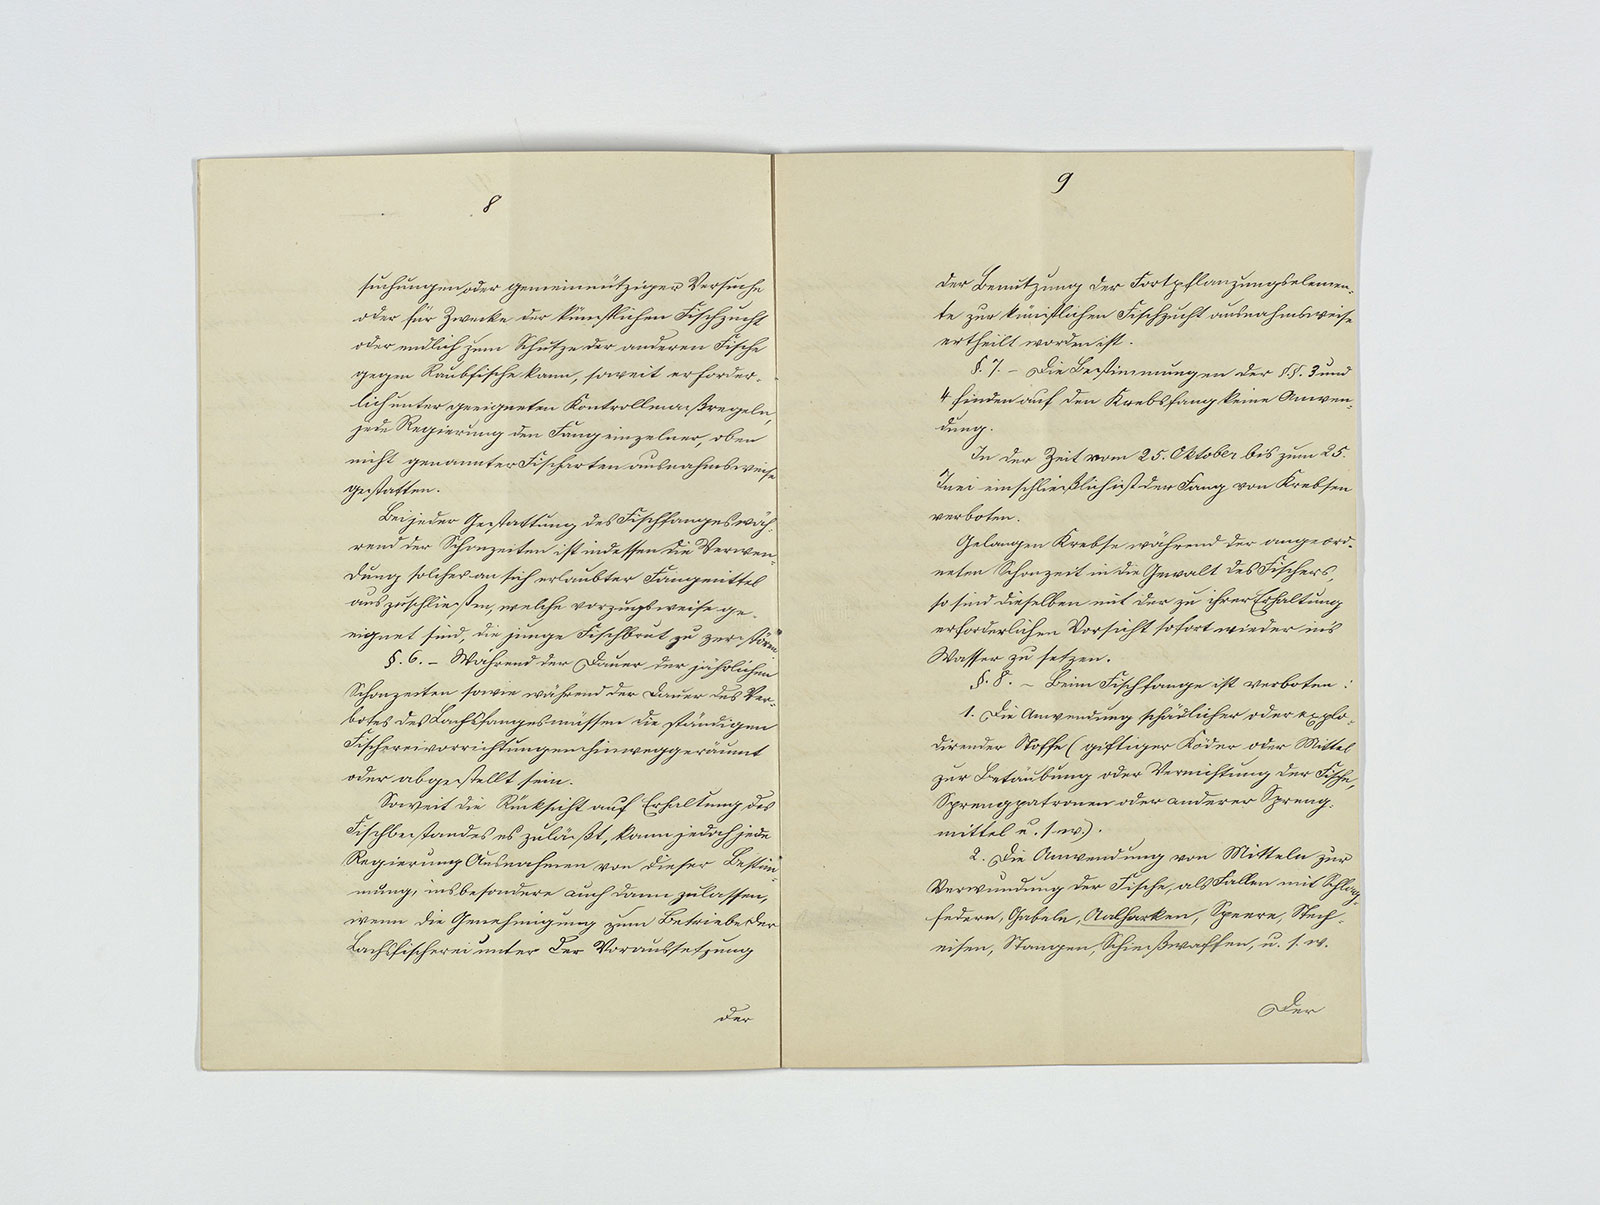 8
suchungen oder gemeinnütziger Versuche
oder für Zwecke der künstlichen Fischzucht
oder endlich zum Schutze der anderen Fische
gegen Raubfische kann, soweit erforder-
lich unter geeigneten Kontrollmaßregeln,
jede Regierung den Fang einzelner, oben
nicht genannter Fischarten ausnahmsweise
gestatten.
Bei jeder Gestattung des Fischfanges wäh-
rend der Schonzeiten ist indessen die Verwen-
dung solcher an sich erlaubter Fangmittel
auszuschließen, welche vorzugsweise ge-
eignet sind, die junge Fischbrut zu zerstören
§. 6. - Während der Dauer der jährlichen
Schonzeiten sowie während der Dauer des Ver-
botes des Lachsfanges müssen die ständigen
Fischereivorrichtungen hinweggeräumt
oder abgestellt sein.
Soweit die Rücksicht auf Erhaltung des
Fischbestandes es zuläßt, kann jedoch jede
Regierung Ausnahmen von dieser Bestim-
mung, insbesondere auch dann zulassen,
wenn die Genehmigung zum Betriebe der
Lachsfischerei unter der Voraussetzung
der
9
der Benutzung der Fortpflanzungselemen-
te zur künstlichen Fischzucht ausnahmsweise
ertheilt worden ist.
§. 7. - Die Bestimmungen der §§. 3 und
4 finden auf den Krebsfang keine Anwen-
dung.
In der Zeit vom 25. Oktober bis zum 25.
Juni einschließlich ist der Fang von Krebsen
verboten.
Gelangen Krebse während der angeord-
neten Schonzeit in die Gewalt des Fischers,
so sind dieselben mit der zu ihrer Erhaltung
erforderlichen Vorsicht sofort wieder ins
Wasser zu setzen.
§. 8. - Beim Fischfange ist verboten:
1. Die Anwendung schädlicher oder explo-
dirender Stoffe (giftiger Köder oder Mittel
zur Betäubung oder Vernichtung der Fische,
Sprengpatronen oder anderer Spreng-
mittel u. s. w.).
2. Die Anwendung von Mitteln zur
Verwundung der Fische, als Fallen mit Schlag-
federn, Gabeln, Aalharken, Speere, Stech-
eisen, Stangen, Schießwaffen, u. s. w.
Der